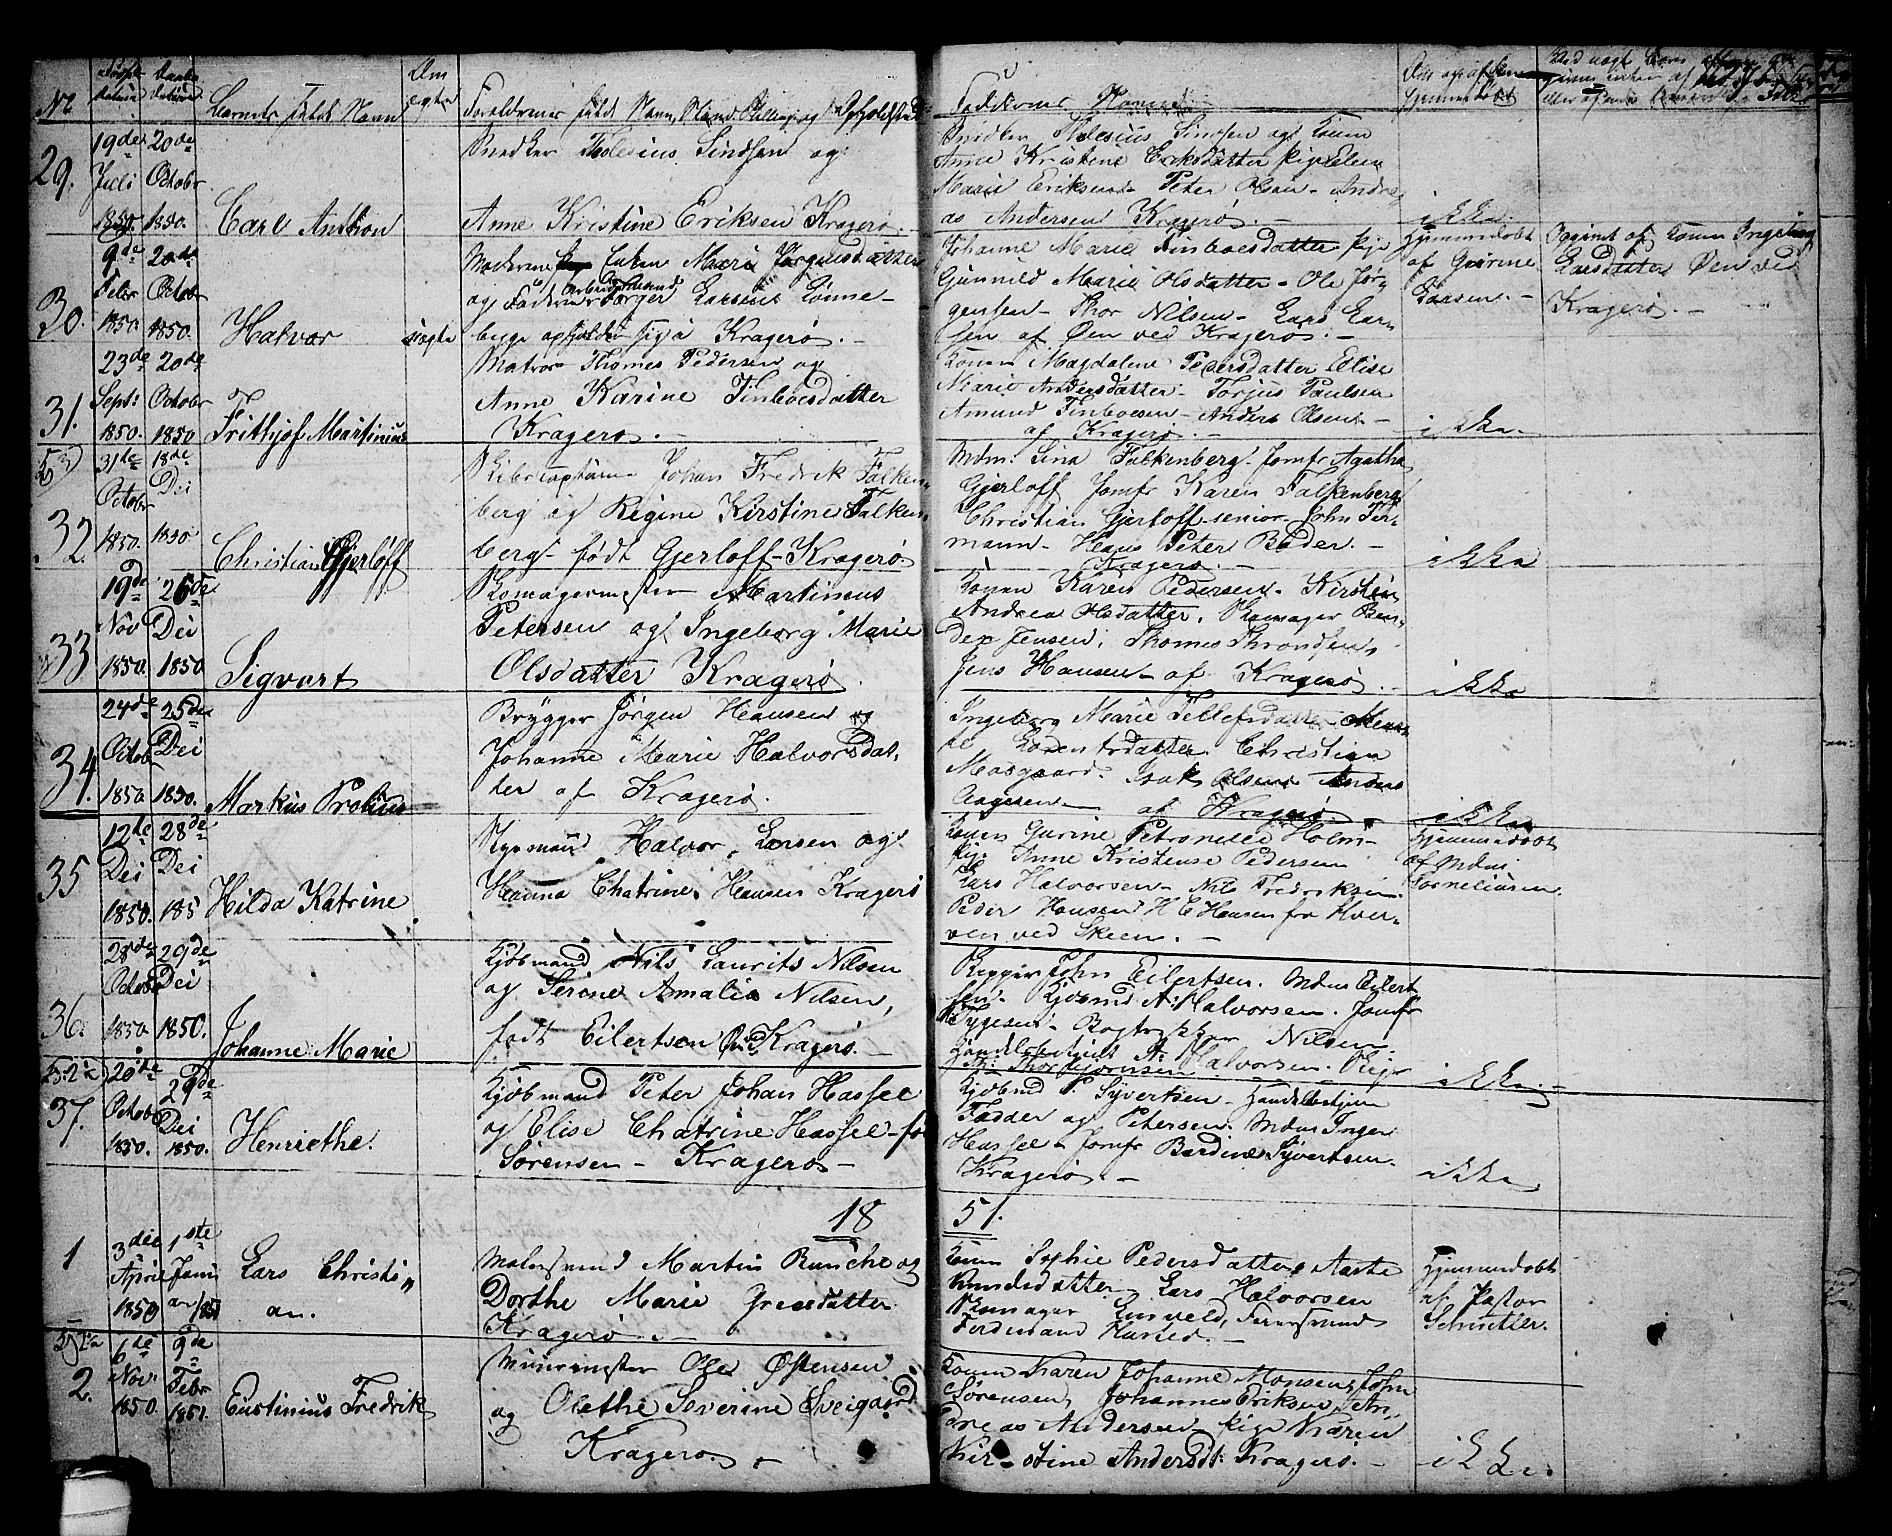 No
Barnets fulde Navn
Om
ægte
Forældrenes fulde Navn, Stand, Stilling og Opholdsted
Faddernes Navne
29.
19de Juli 1850.
20de Octobr 1850.
Carl Anthon
Snedker Tolesius Lindsen og
Anne Kristine Eriksen Kragerø. -
Snedker Tolesius Lindsen og Konen
Anne Kristine Eriksdatter pige Elen
Marie Eriksen - Peter Olsen - Andre-
as Andersen Kragerø. -
ikke.
30.
9de Febr 1850.
20de Octobr 1850.
Halvor
uægte
Moderen Enken Marie Jørgensdatter
og Faderen Arbeidsmand Børger Larsen Lønne-
bygge opholder sig i Kragerø. -
Johanne Marie Tinboesdatter pige
Gunnild Marie Olsdatter - Ole Jør-
gensen - Thor Nilsen - Lars Lar-
sen af Øen ved Kragerø. -
Hjemmedøbt
af Gurine
Larsen. -
Opgivet af Konen Ingeborg
Larsdatter Øen ved
Kragerø. -
31.
23de Septr 1850.
20de Octobr 1850
Frithjof Martinius
Matros Thomes Pedersen og
Anne Karine Tinboesdatter
Kragerø. -
Konen Magdalene Pedersdatter Elise
Marie Andersdatter - Torjus Paulsen
Amund Tinboesen - Anders Olsen -
af Kragerø. -
ikke.
32.
31de Octobr 1850.
18de Dei 1850
Christian Gjerløff
Skibscaptain Johan Fredrik Falken-
berg og Regine Kirstine Falken-
berg - født Gjerloff - Kragerø.
Mdm: Lina Falkenberg. Jomfr Agatha
Gjerloff Jomfr Karen Falkenberg
Christian Gjerloff senior - John Fer-
mann - Hans Peter Bøder. -
Kragerø. -
ikke
33.
19de Nov 1850.
26de Dei 1850
Sigvart
Skomagermester Martinius
Petersen og Ingeborg Marie
Olsdatter Kragerø.
Konen Karen Pedersen. Kirstine
Andrea Olsdatter. Skomager Ben-
dex Jensen; Thomes Throndsen,
Jens Hansen - af Kragerø. -
ikke
34.
24de Octobr 1850
25de Dei 1850.
Markus Probus
Brygger Jørgen Hansen og
Johanne Marie Halvorsdat-
ter af Kragerø.
Ingeborg Marie Tellefsdatter
Lorentsdatter Christian
Mosgaard. Isak Olsen Anders
Aagesen - af Kragerø. -
ikke
35
12te Dei 1850.
28de Dei 185
Hilda Katrine
Styrmand Halvor Larsen og
Hanna Chatrine Hansen Kragerø
Konen Gurine Petronelle Holm -
pige Anne Kristense Pedersen
Lars Halvorsen - Nils Fredriksen
Peder Hansen H C Hansen fra Hver-
ven ved Skeen. -
Hjemmedøbt
af Mdm:
Corneliusen.
36.
28de Octobr 1850
29de Dei 1850.
Johanne Marie
Kjøbmand Nils Laurits Nilsen
og Serine Amalia Nilsen,
født Eilertsen Kragerø. -
Reppsl: John Eilertsen. Mdm Eilert
sen. Kjøbmd A: Halvorsen. Jomfr
Tygesen - Bogtrykker Nilsen.
Handelsbetjent A. Halvorsen. Pige
Thorbjørnsen
ikke. -
37.
20de Octobr 1850.
29de Dei 1850.
Henriethe.
Kjøbmand Peter Johan Hassel
og Elise Chatrine Hassel - fø
Sørensen - Kragerø -
Kjøbmd P. Syvertsen - Handelsbetjen
Fadder og Petersen. Mdm Inger
Hassel - Jomfr Bardine Syvertsen.
Kragerø. -
ikke
18
51.
1
3die April 1850
1ste Janu
ar 1851
Lars Christi„
an.
Malersvend Martin Bunche og
Dorthe Marie Jensdatter
Kragerø. -
Konen Sophie Pedersdatter Aaste
Knudsdatter Lars Halvorsen
Skomager
Ferdenand Husted. -
Hjemmedøbt
af Pastor
Schnetler.
2.
6te Nov. 1850.
9de Febr 1851.
Eustinius Fredrik
Muurmester Ole Østensen
og Olethe Severine Sveigaard
Kragerø. -
Konen Karen Johanne Monsen, John
Sørensen, Johannes Eriksen, An-
dreas Andersen - pige Karen
Kir-stine Andersdt: Kragerø. -
ikke.